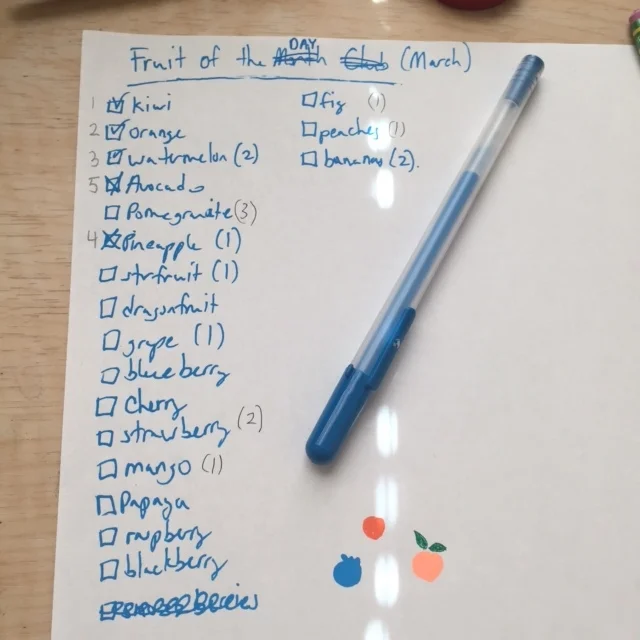 Fruit of the Month DAY Club (March)
1 kiwi
2 orange
3 watermelon (2)
5 Avocado
Pomegranite (3)
4 Pineapple (1)
strfruit (1)
dragonfruit
grape (1)
blueberry
Cherry
strawberry (2)
mango (1)
Papaya
raspberry
blackberry
fig (1)
peaches (1)
bananas (2).